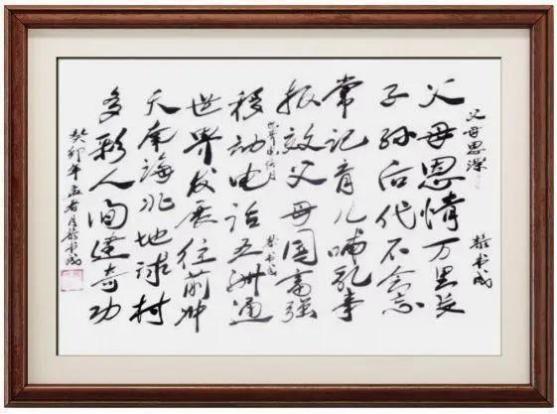 父母恩深
父母恩情万里长
子孙后代不会忘
常记育儿哺乳事
报效父母国富强
移动电话五洲通
世界发展往前冲
天南海北地球村
多彩人间建奇功
癸卯年孟春月 书成